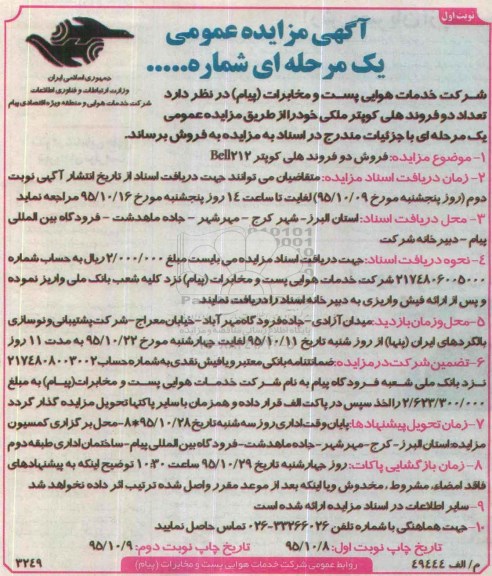 نوبت اول
آگهی مزایده عمومی
یک مرحله ای شماره.....
جمهوری اسلامی ایران
وزارت ارتباطات و فناوری اطلاعات
شرکت خدمات هوایی و منطقه ویژه اقتصادی پیام
شرکت خدمات هوایی پست و مخابرات (پیام) در نظر دارد
تعداد دو فروند هلی کوپتر ملکی خود را از طریق مزایده عمومی
یک مرحله ای با جزئیات مندرج در اسناد به مزایده به فروش برساند.
۱- موضوع مزایده: فروش دو فروند هلی کوپتر Bell۲۱۲
۲- زمان دریافت اسناد مزایده: متقاضیان می توانند جهت دریافت اسناد از تاریخ انتشار آگهی نوبت
دوم (روز پنجشنبه مورخ ۹۵/۱۰/۰۹) لغایت تا ساعت ۱۴ روز پنجشنبه مورخ ۹۵/۱۰/۱۶ مراجعه نماید
۳- محل دریافت اسناد: استان البرز- شهر کرج - مهرشهر - جاده ماهدشت - فرودگاه بین المللی
پیام - دبیرخانه شرکت
۴- نحوه دریافت اسناد: جهت دریافت اسناد مزایده می بایست مبلغ ۲/۰۰۰/۰۰۰ ریال به حساب شماره
۲۱۷۴۸۰۶۰۰۵۰۰۰ شرکت خدمات هوایی پست و مخابرات (پیام) نزد کلیه شعب بانک ملی واریز نموده
و پس از ارائه فیش واریزی به دبیرخانه اسناد را دریافت نمایند.
۵-محل وزمان بازدید: میدان آزادی-جاده فرودگاه مهرآباد- خیابان معراج-شرکت پشتیبانی و نوسازی
بالگردهای ایران (پنها) از روز شنبه تاریخ ۹۵/۱۰/۱۱ لغایت چهارشنبه مورخ ۹۵/۱۰/۲۲ به مدت ۱۱ روز
۶-تضمین شرکت در مزایده: ضمانتنامه بانکی معتبر و یا فیش نقدی به شماره حساب ۲۱۷۴۸۰۸۰۰۳۰۰۲
نزد بانک ملی شعبه فرودگاه پیام به نام شرکت خدمات هوایی پست و مخابرات(پیام) به مبلغ
۲/۶۲۳/۳۰۰/۰۰۰ را اخذ سپس در پاکت الف قرار داده و همزمان با سایر پاکتها تحویل مزایده گذار گردد
۷-زمان تحویل پیشنهادها: پایان وقت اداری روز سه شنبه تاریخ ۹۵/۱۰/۲۸*۸-محل برگزاری کمسیون
مزایده: استان البرز- کرج- مهرشهر- جاده ماهدشت- فرودگاه بین المللی پیام-ساختمان اداری طبقه دوم
۸- زمان بازگشایی پاکات: روز چهارشنبه تاریخ ۹۵/۱۰/۲۹ ساعت ۱۰:۳۰ توضیح اینکه به پیشنهادهای
فاقد امضاء، مشروط، مخدوش و یا اینکه بعد از موعد مقرر واصل شده ترتیب اثر داده نخواهد شد
۹- سایر اطلاعات در اسناد مزایده ارائه شده است
۱۰-جهت هماهنگی با شماره تلفن ۳۳۲۶۶۰۲۶-۰۲۶ تماس حاصل نمایید
تاریخ چاپ نوبت اول: ۹۵/۱۰/۸ تاریخ چاپ نوبت دوم: ۹۵/۱۰/۹
م/الف ۴۹۴۴۴ روابط عمومی شرکت خدمات هوایی پست و مخابرات (پیام) ۳۲۴۹